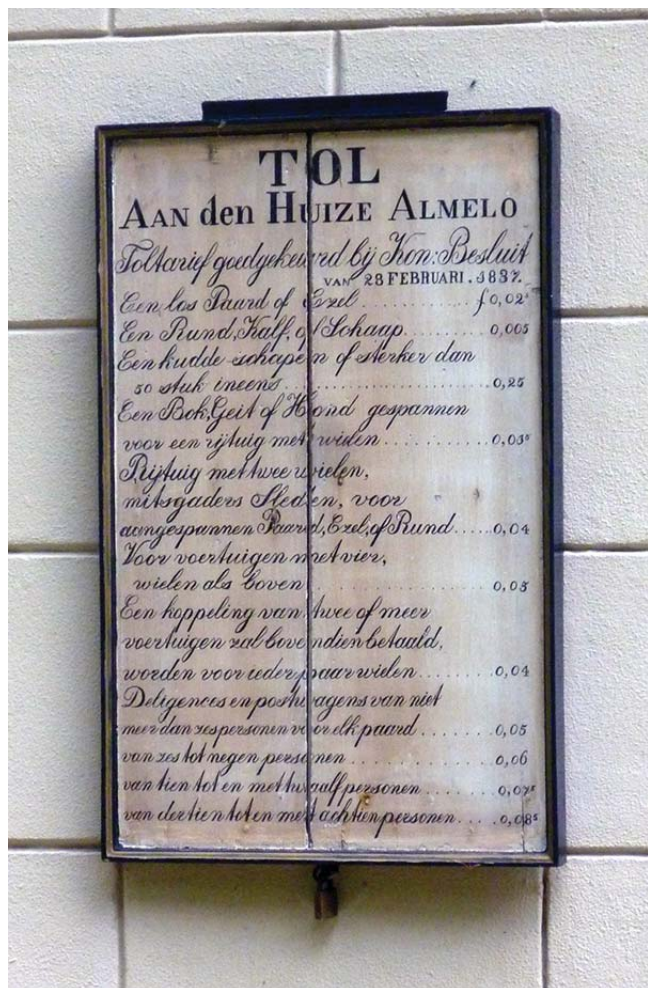 TOL
AAN den HUIZE ALMELO
Toltarief goedgekeurd bij Kon: Besluit
VAN 28 FEBRUARI. 1837.
Een los Paard of Ezel ............ f 0,02⁵
Een Rund, Kalf, of Schaap ............ 0,005
Een kudde schapen of sterker dan
50 stuk ineens ............ 0,25
Een Bok, Geit of Hond gespannen
voor een rijtuig met wielen ............ 0,03⁵
Rijtuig met twee wielen,
mitsgaders Sleden, voor
aangespannen Paard, Ezel, of Rund ..... 0,04
Voor voertuigen met vier,
wielen als boven ............ 0,05
Een koppeling van twee of meer
voertuigen zal bovendien betaald,
worden voor ieder paar wielen ............ 0,04
Deligences en postwagens van niet
meer dan zes personen voor elk paard ........ 0,05
van zes tot negen personen ............ 0,06
van tien tot en met twaalf personen ........ 0,07⁵
van dertien tot en met achtien personen .... 0,08⁵